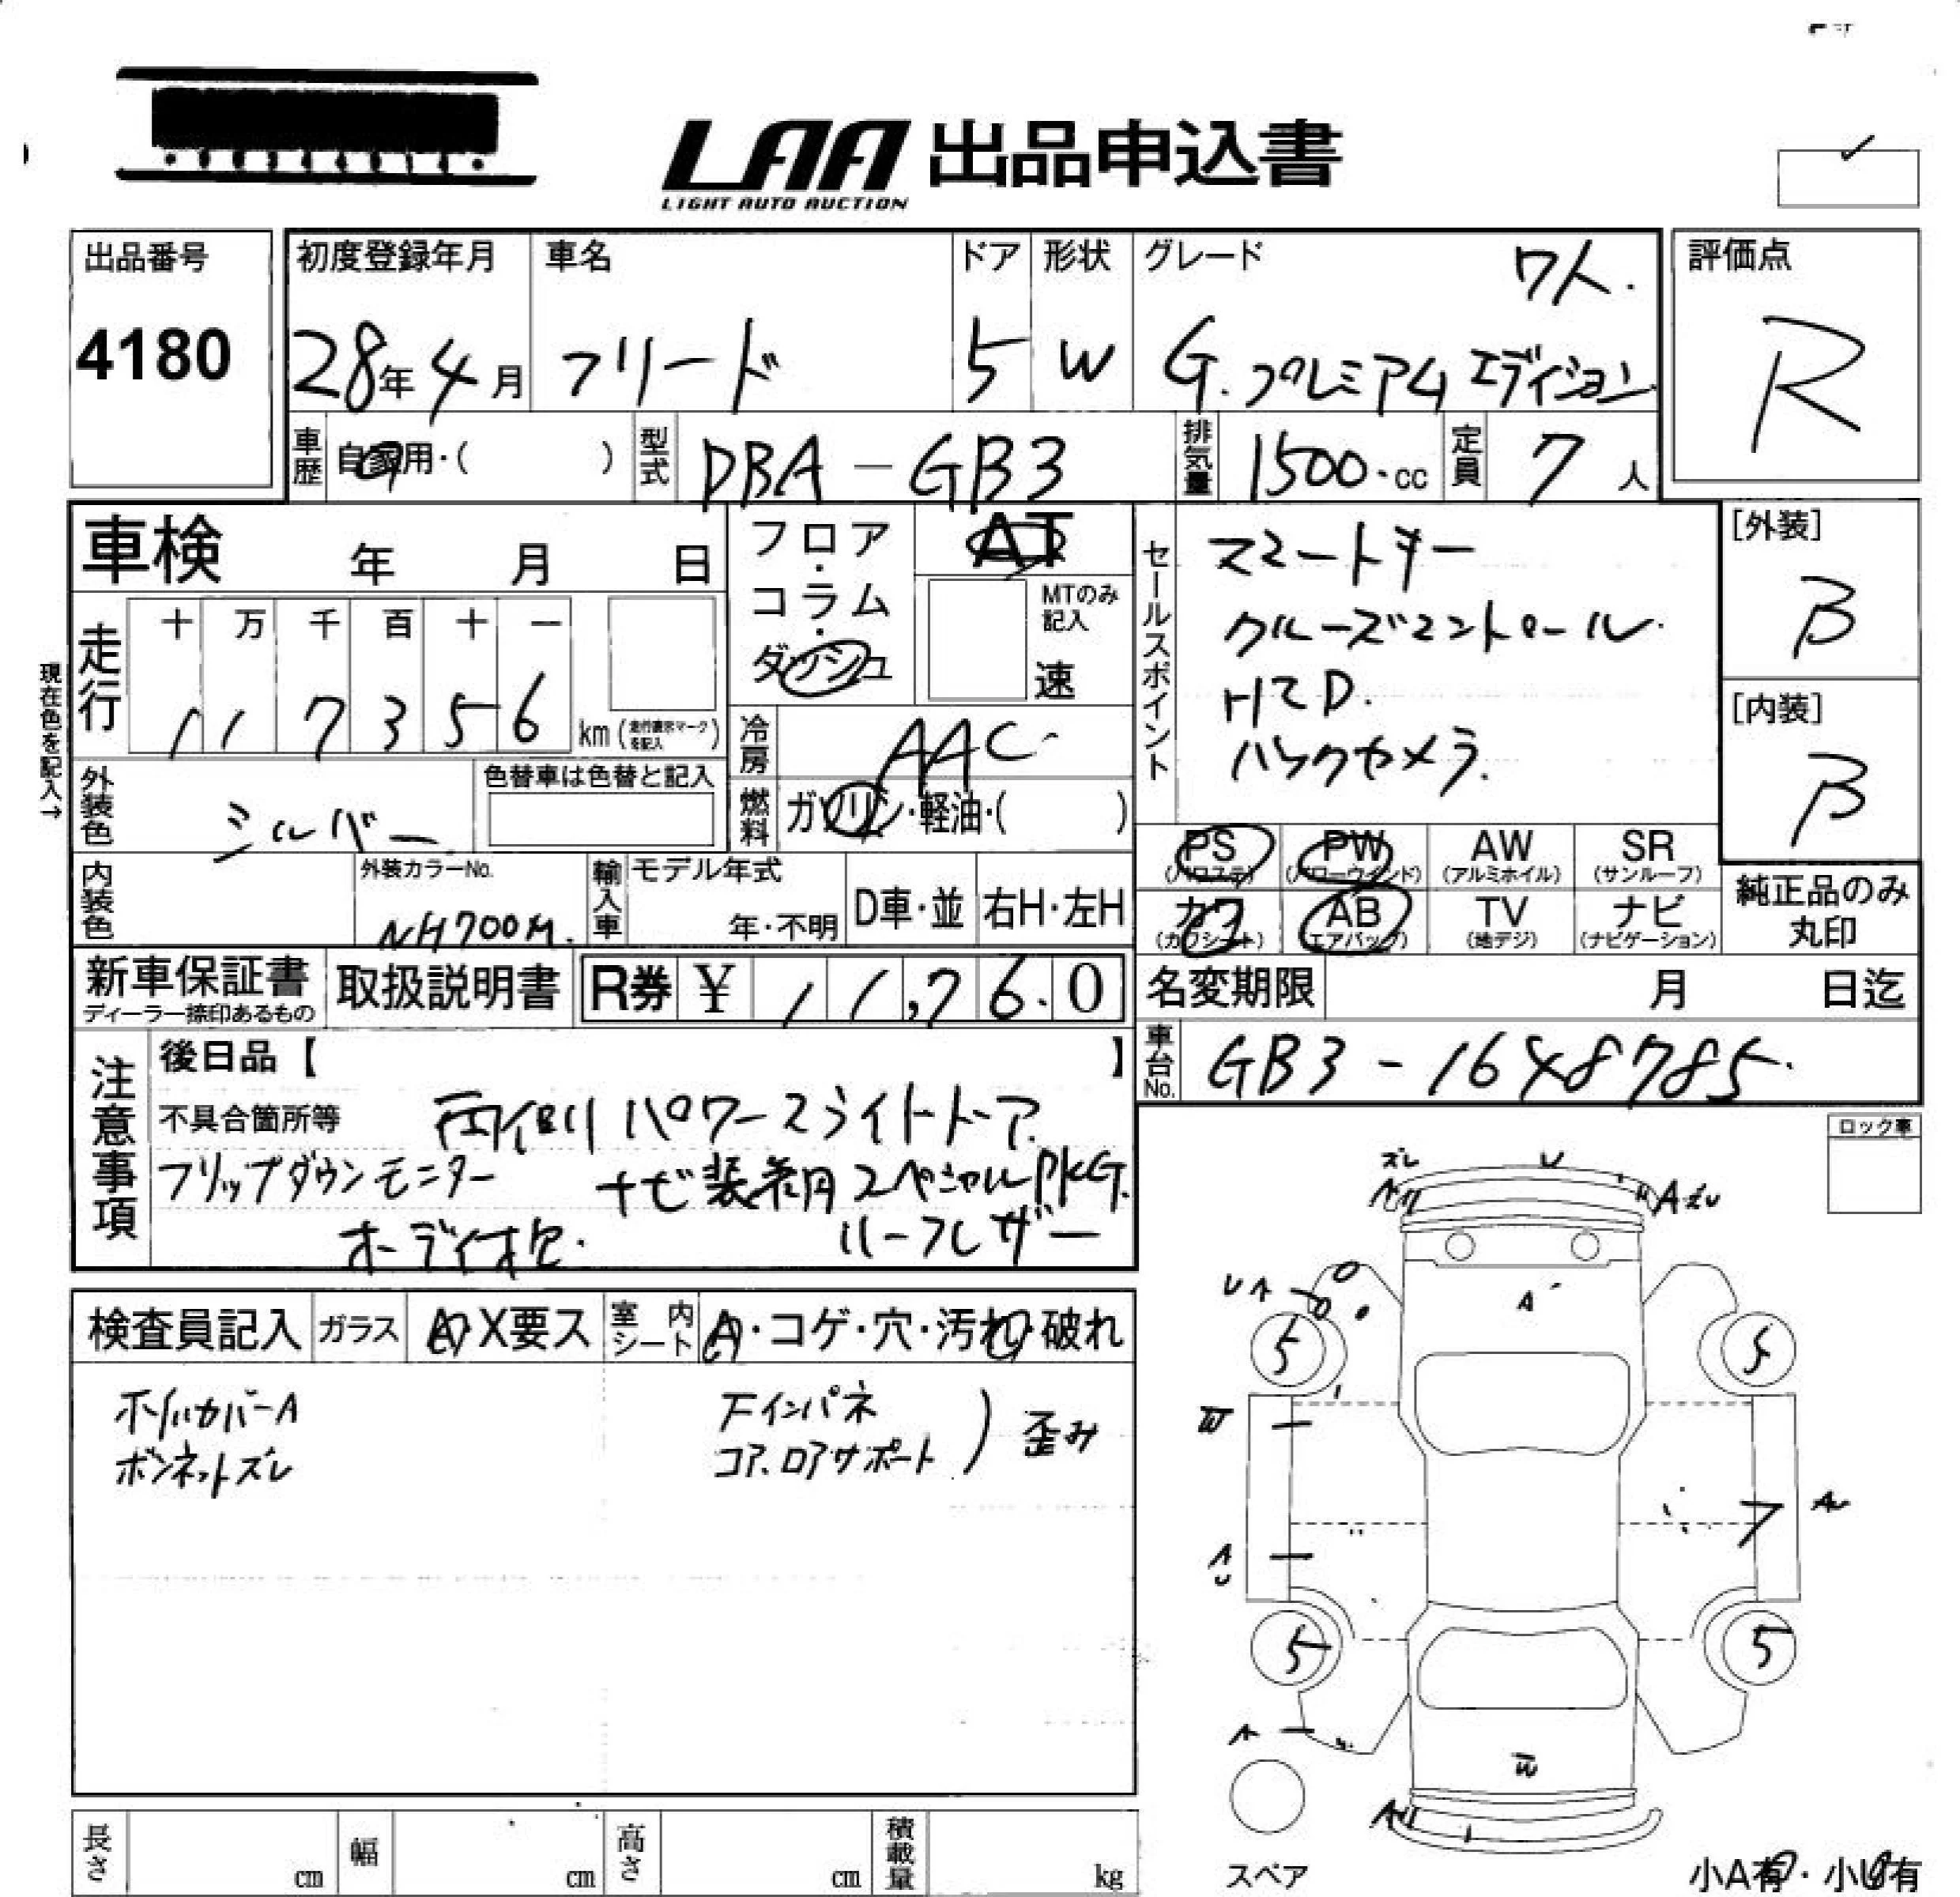 LAA 出品申込書
LIGHT AUTO AUCTION
出品番号
4180
初度登録年月
28年4月
車名
フリード
ドア
5
形状
W
グレード
7人.
G.プレミアムエディション
評価点
R
車歴
自家用・( )
型式
DBA-GB3
排気量
1500.cc
定員
7人
車検 年 月 日
走行
十 万 千 百 十 一
1 1 7 3 5 6 km(走行表示マークを記入)
現在色を記入→
外装色
シルバー
色替車は色替と記入
内装色
外装カラーNo.
NH700M.
輸入車
モデル年式
年・不明
D車・並
右H・左H
フロア・
コラム・
ダッシュ
AT
MTのみ記入
速
冷房
AAC
燃料
ガソリン・軽油・( )
セールスポイント
スマートキー
クルーズコントロール.
HID.
バックカメラ.
[外装]
B
[内装]
B
PS
(パワステ)
PW
(パワーウインド)
AW
(アルミホイル)
SR
(サンルーフ)
カワ
(カワシート)
AB
(エアバック)
TV
(地デジ)
ナビ
(ナビゲーション)
純正品のみ
丸印
新車保証書
ディーラー捺印あるもの
取扱説明書
R券 ¥ 11,760
名変期限 月 日迄
車台No.
GB3-1648785.
注意事項
後日品【 】
不具合箇所等
両側パワースライドドア.
フリップダウンモニター
ナビ装着用スペシャルPKG.
オーディオ欠.
ハーフレザー
検査員記入
ガラス
A・X要ス
室内シート
A・コゲ・穴・汚れ・破れ
ホイルカバーA
ボンネットズレ
Fインパネ
コア、ロアサポート
)歪み
ロック車
ズレ
U
A
A
UA
A
5
5
W
A
U
5
5
A
W
A
スペア
小A有・小U有
長さ cm
幅 cm
高さ cm
積載量 kg